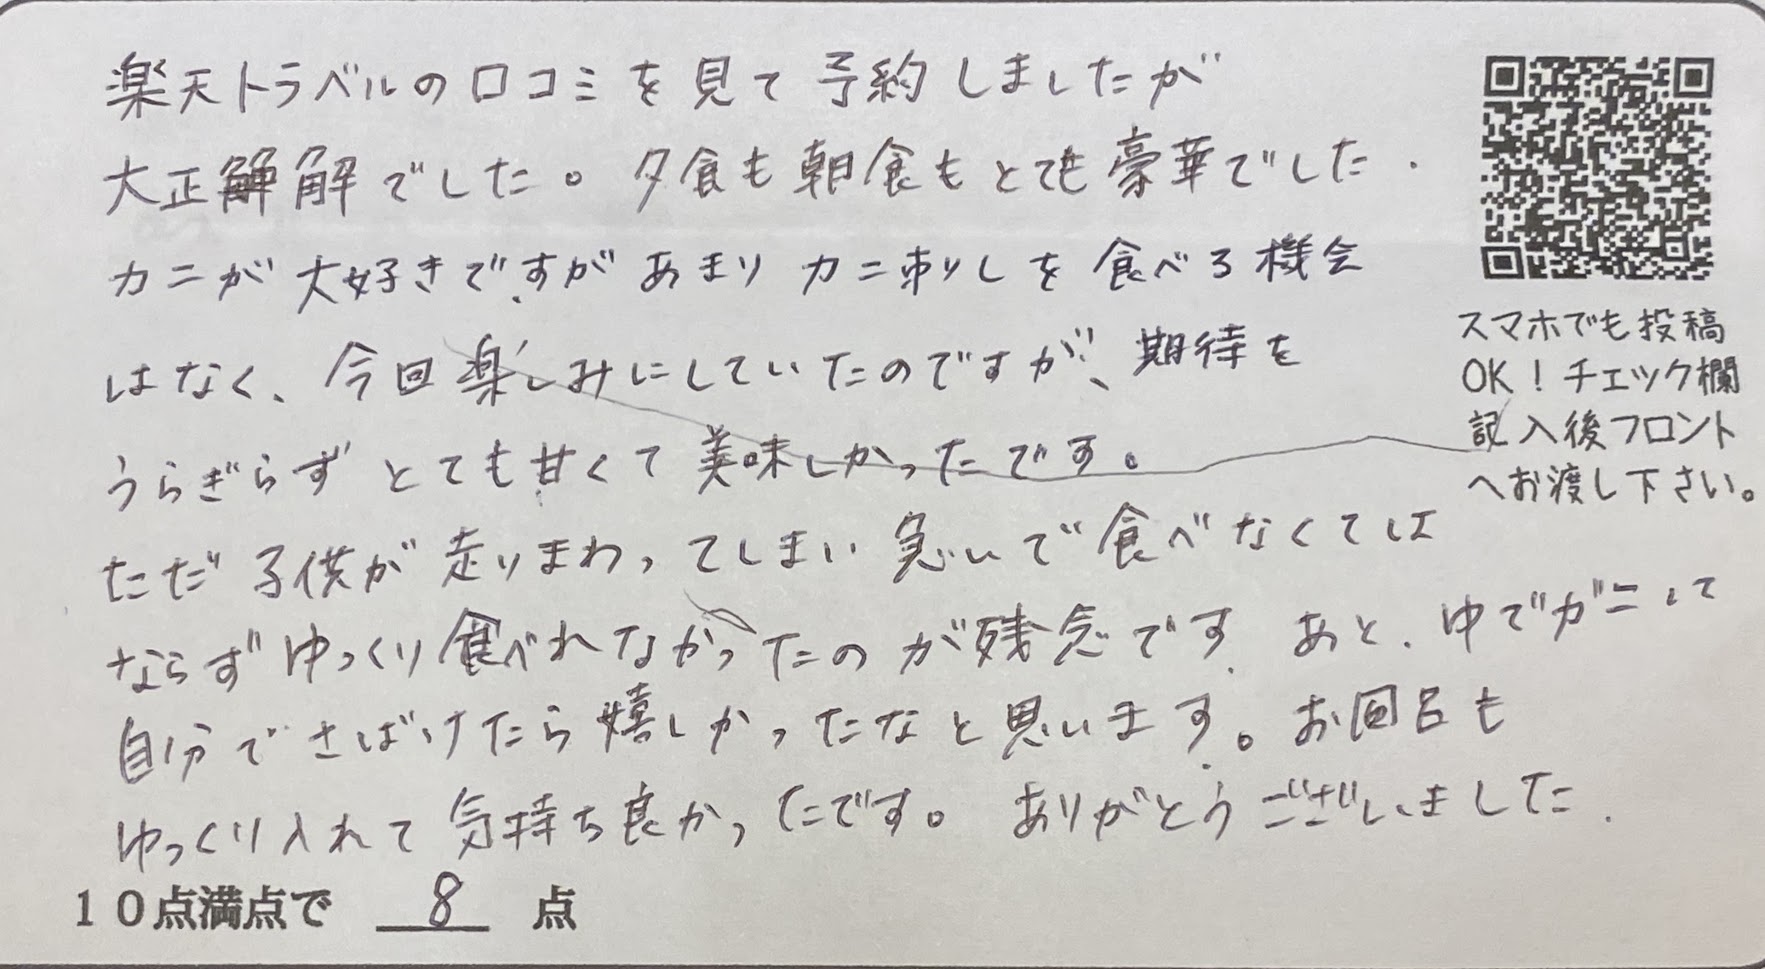 楽天トラベルの口コミを見て予約しましたが
大正解でした。夕食も朝食もとても豪華でした.
カニが大好きですがあまりカニ刺しを食べる機会
はなく、今回楽しみにしていたのですが、期待を
うらぎらずとても甘くて美味しかったです。
ただ子供が走りまわってしまい急いで食べなくては
ならずゆっくり食べれなかったのが残念です. あと、ゆでガニって
自分でさばけたら嬉しかったなと思います。お風呂も
ゆっくり入れて気持ち良かったです。ありがとうございました.
10点満点で 8 点
スマホでも投稿
OK!チェック欄
記入後フロント
へお渡し下さい。